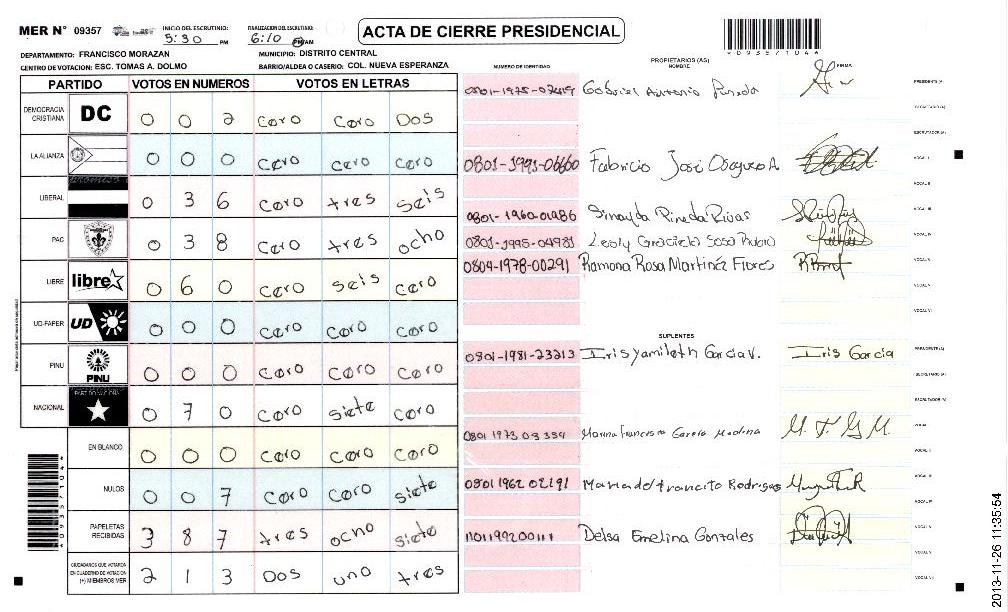 MER N° 09357
INICIO DEL ESCRUTINIO: 5:30 PM
FINALIZACION DEL ESCRUTINIO: 6:10 PM/AM
ACTA DE CIERRE PRESIDENCIAL
DEPARTAMENTO: FRANCISCO MORAZAN
MUNICIPIO: DISTRITO CENTRAL
CENTRO DE VOTACION: ESC. TOMAS A. DOLMO
BARRIO/ALDEA O CASERIO: COL. NUEVA ESPERANZA
PARTIDO VOTOS EN NUMEROS VOTOS EN LETRAS
DEMOCRACIA CRISTIANA DC 0 0 2 Cero Cero Dos
LA ALIANZA 0 0 0 Cero cero cero
LIBERAL 0 3 6 Cero tres seis
PAC 0 3 8 Cero tres ocho
LIBRE libre 0 6 0 Cero seis cero
UD-FAPER UD 0 0 0 Cero Cero Cero
PINU PINU 0 0 0 Cero Cero Cero
NACIONAL 0 7 0 Cero siete cero
EN BLANCO 0 0 0 Cero Cero Cero
NULOS 0 0 7 Cero Cero siete
PAPELETAS RECIBIDAS 3 8 7 tres ocho siete
CIUDADANOS QUE VOTARON EN CUADERNO DE VOTACION (+) MIEMBROS MER 2 1 3 Dos uno tres
NUMERO DE IDENTIDAD
PROPIETARIOS (AS)
NOMBRE
FIRMA
Gabriel Antonio Pineda PRESIDENTE (A)
SECRETARIO (A)
ESCRUTADOR (A)
Fabricio José Oseguera A. VOCAL I
VOCAL II
0801-1960-01986 Sinayda Pineda Rivas VOCAL III
0801-1995-04981 Lesly Graciela Sosa Rubio VOCAL IV
0804-1978-00291 Ramona Rosa Martinez Flores VOCAL V
VOCAL VI
SUPLENTES
0801-1981-23213 Iris yamileth Garcia V. Iris Garcia PRESIDENTE (A)
SECRETARIO (A)
ESCRUTADOR (A)
0801 1973 03 334 Marina Francisca Garcia Medina M. F. G. M. VOCAL I
VOCAL II
0801 1962 02191 Maria del Rodriguez VOCAL III
VOCAL IV
Delsa Emelina Gonzales VOCAL V
VOCAL VI
VOCAL VII
*09357104*
2013-11-26 11:35:54